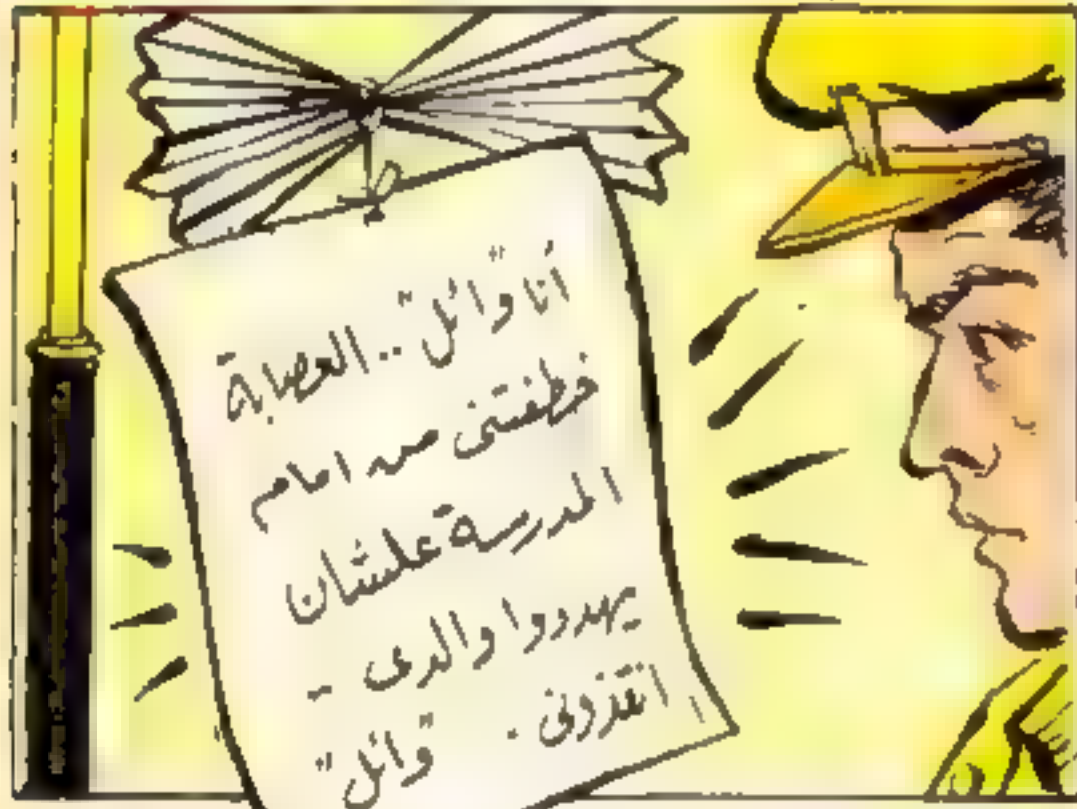 أنا "وائل" .. العصابة
خطفتنى من امام
المدرسة علشان
يهددوا والدى -
انقذونى . "وائل"